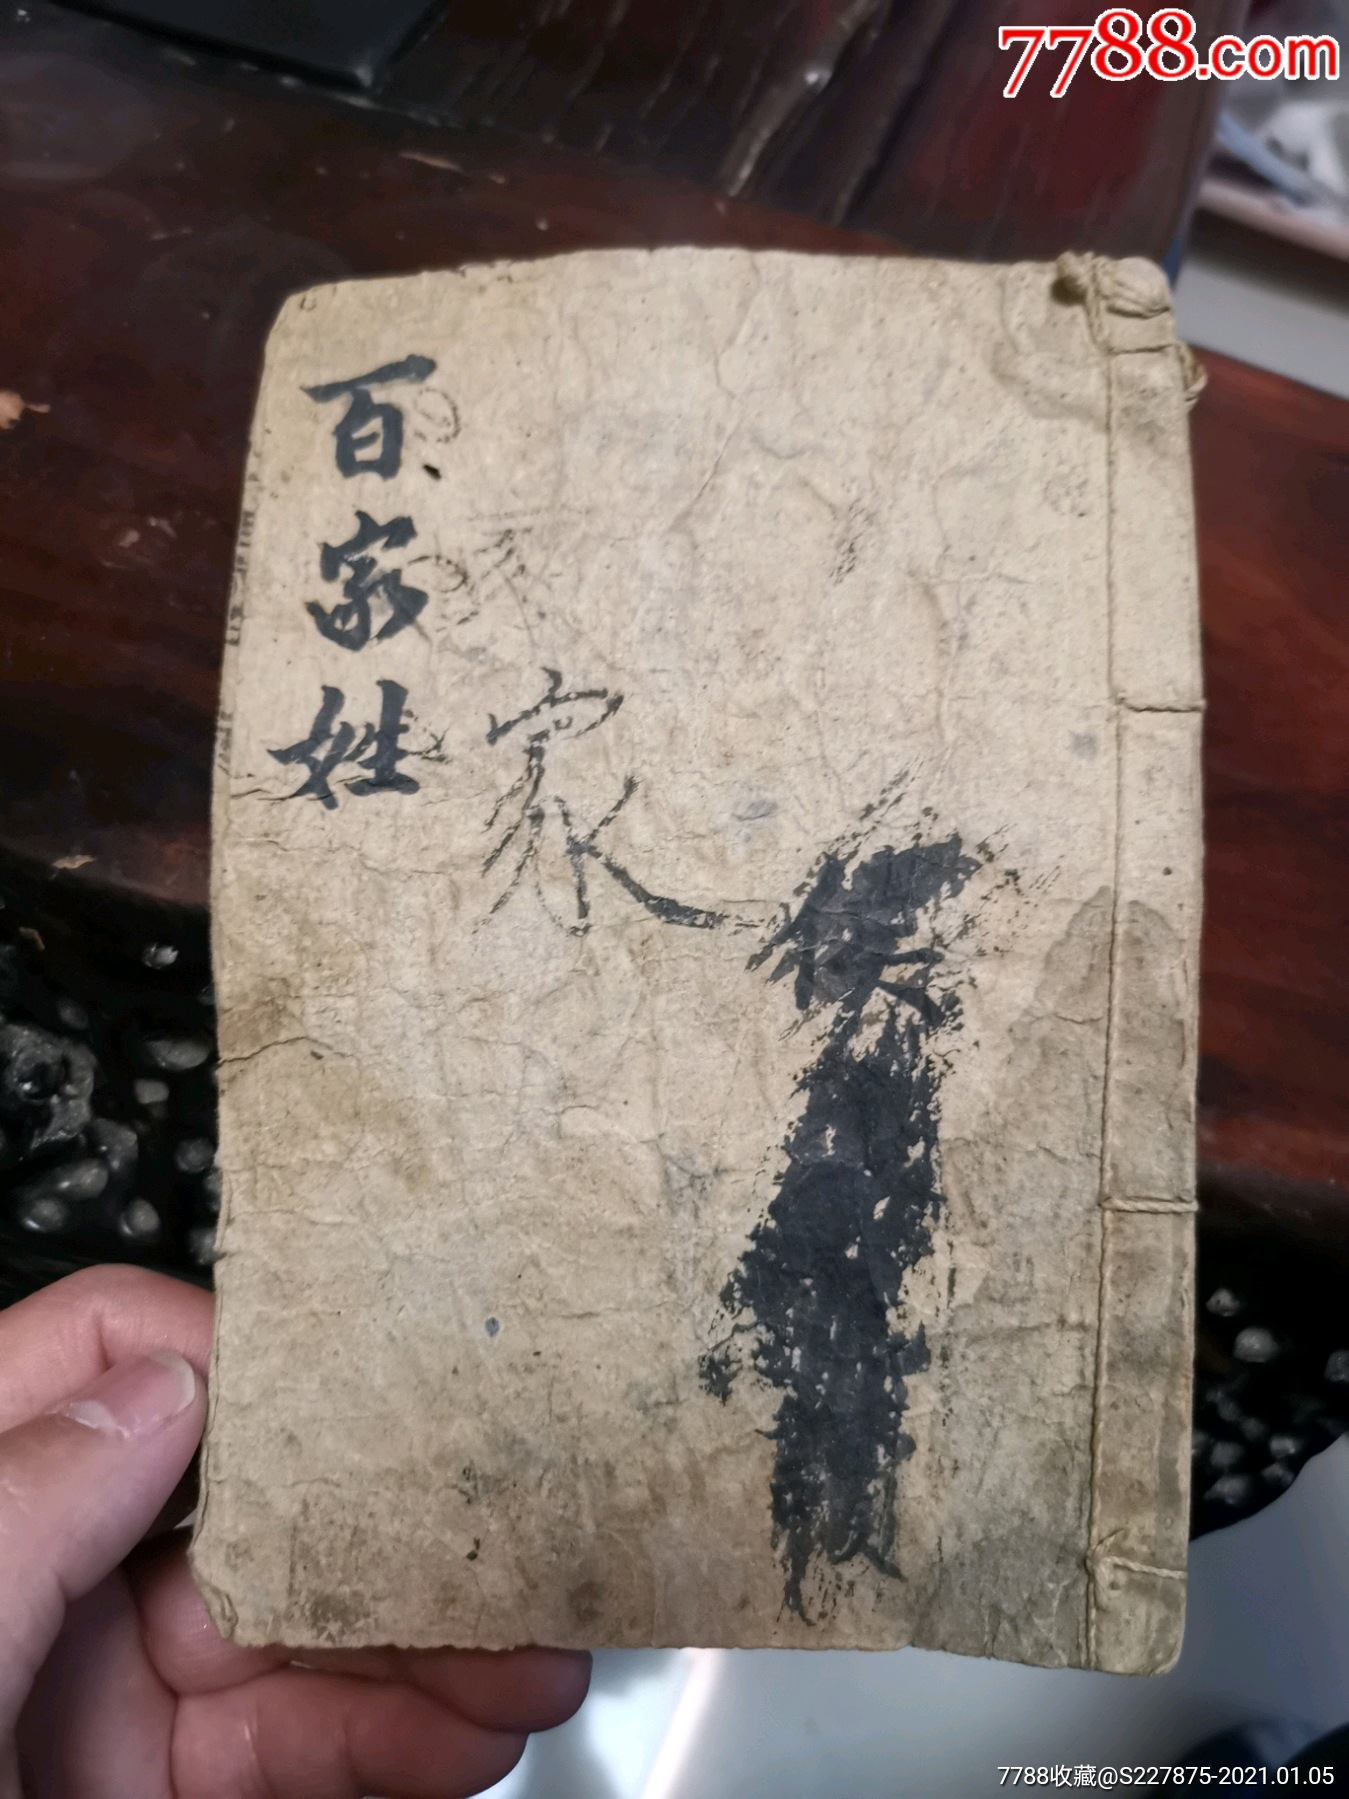 7788.com
百家姓
家
7788收藏@S227875-2021.01.05